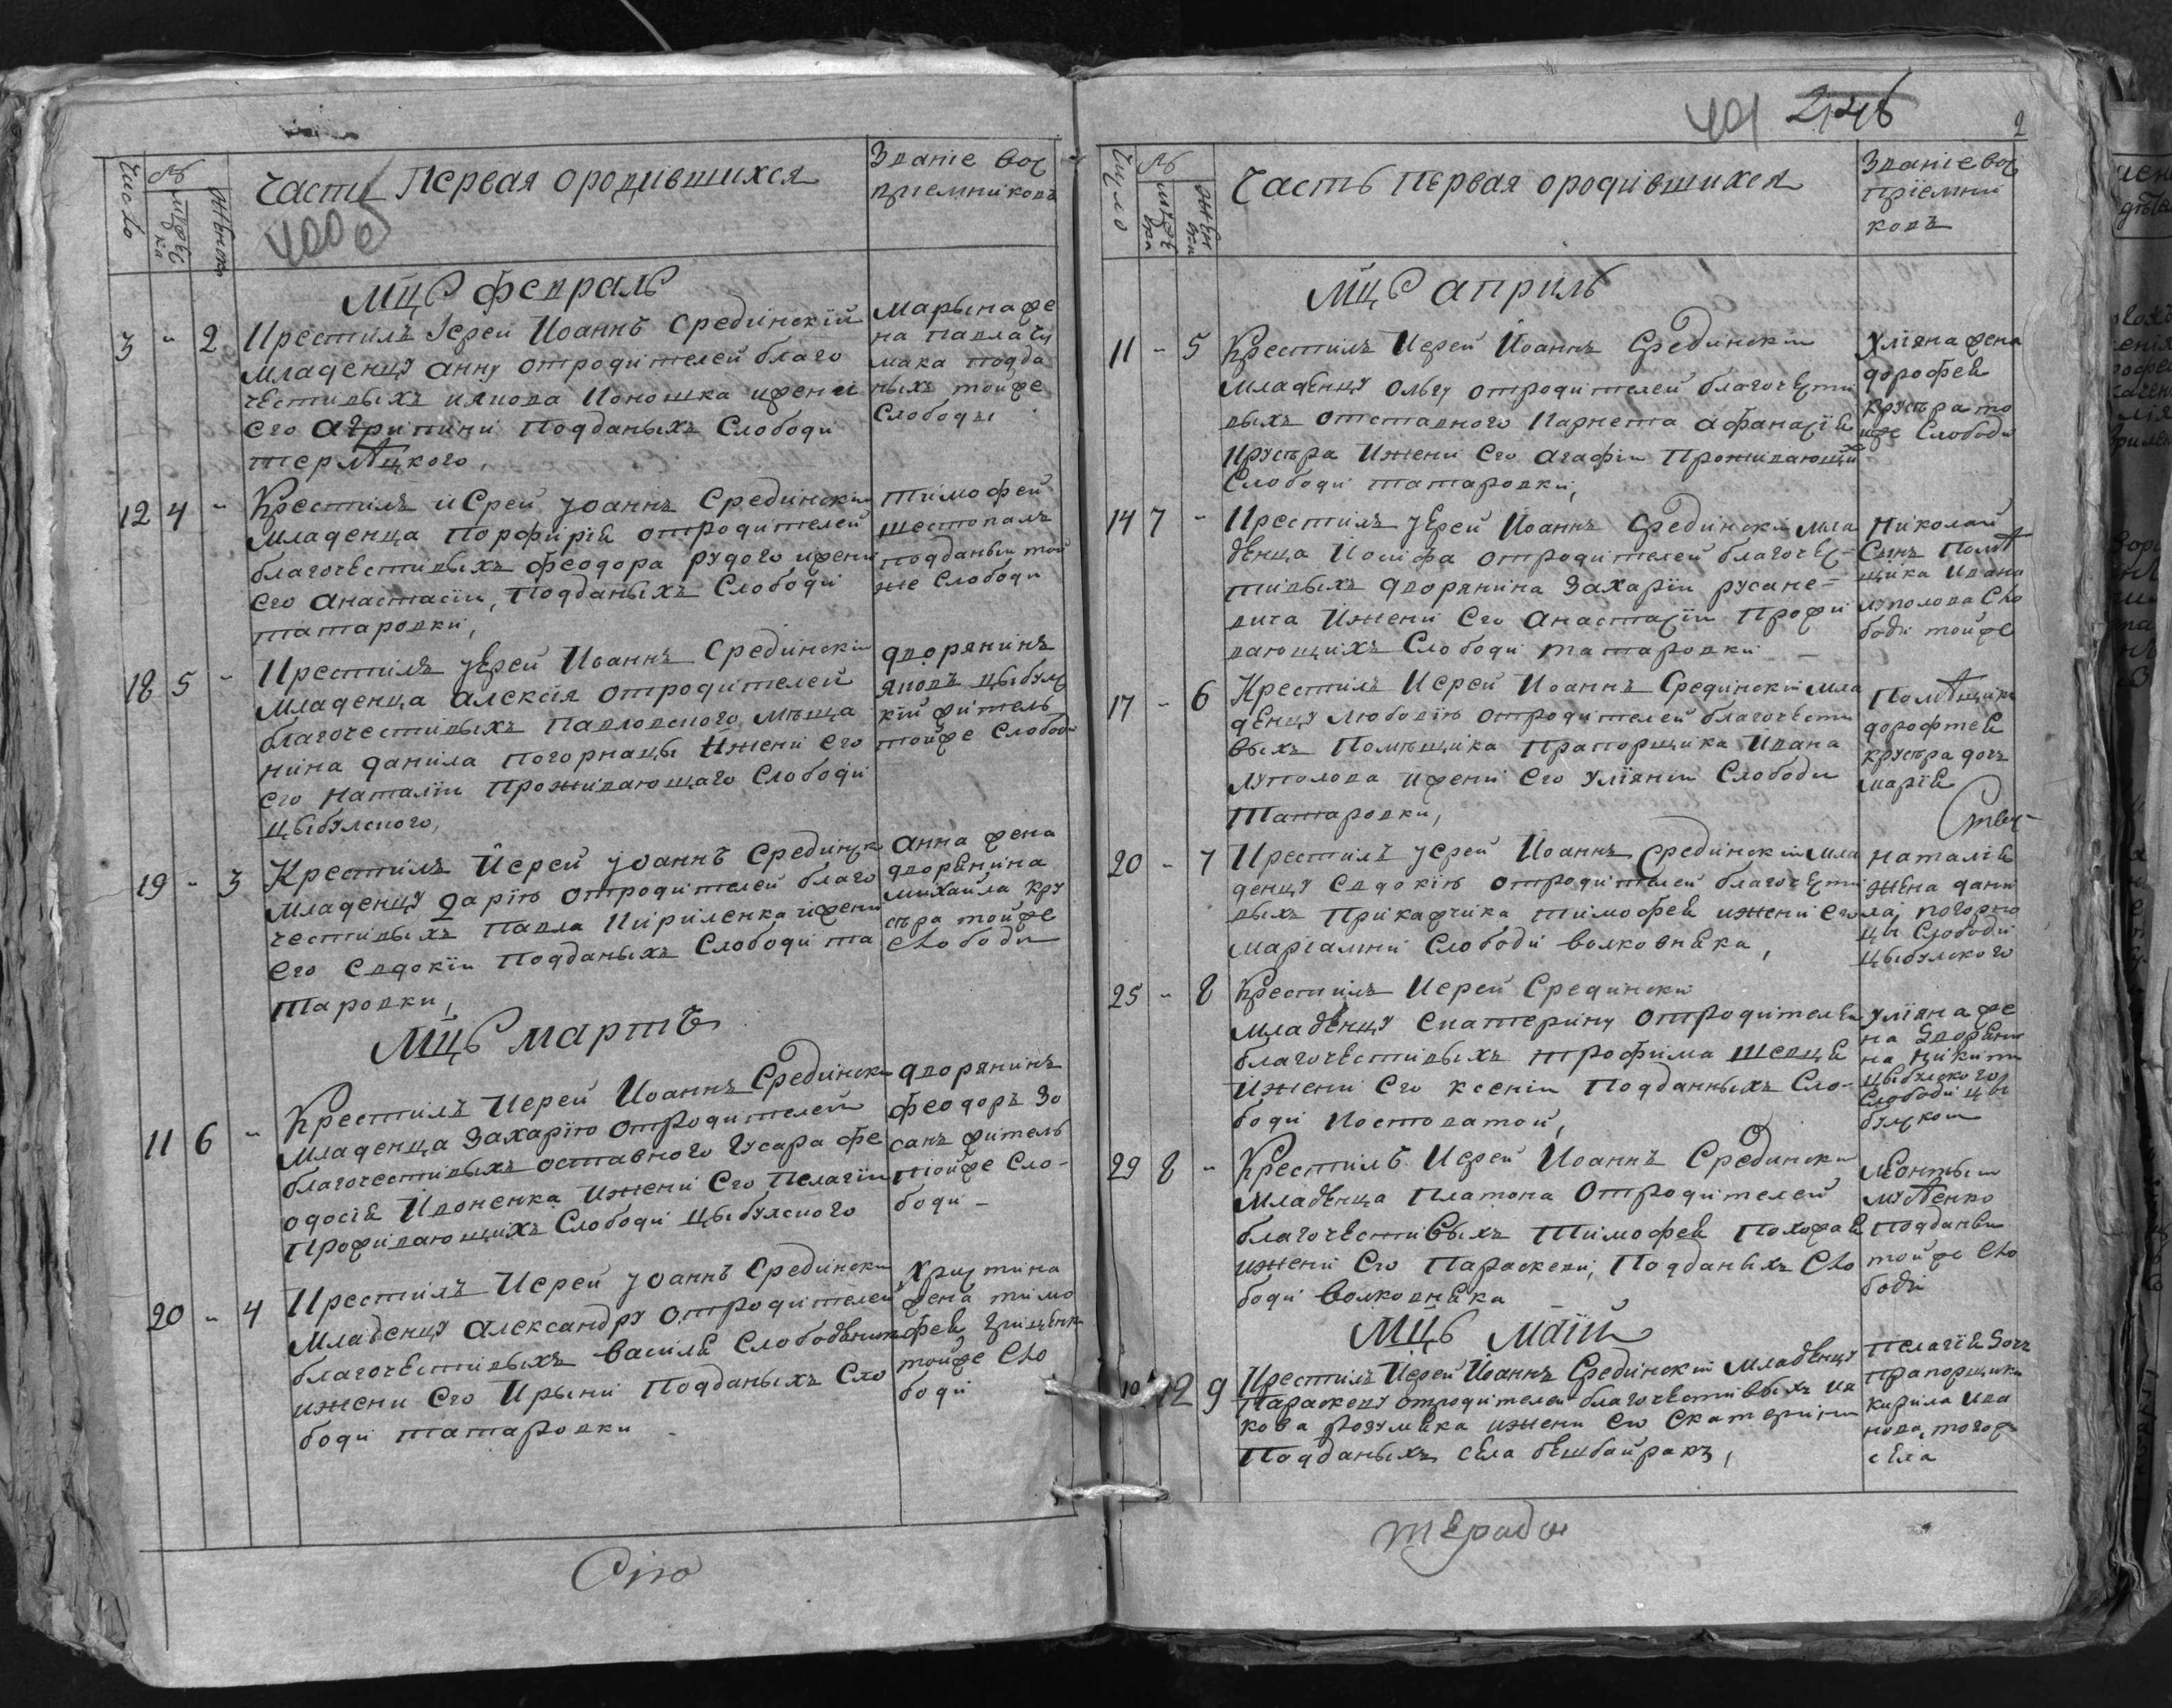 Число
№
мужеска
женска
Часть Первая о родившихся
400 об
Званіе вос
приемниковъ
Мцъ февраль
3 - 2
Крестилъ Іерей Иоаннъ Срединскій
младенцу анну отродителей благо
честивыхъ Иякова Коношка ижени
его агрипини Подданыхъ Слободи
терпѣцкого,
Марьяна же
на Павла Чу
мака подда
ныхъ тойже
Слободы
12 4 -
Крестилъ иерей Іоаннъ Срединскии
младенца Порфирія отродителей
благочестивыхъ феодора рудого ижени
его анастасіи, Подданыхъ Слободи
татаровки,
тимофей
шестопалъ
подданыи той
же Слободи
18 5 -
Крестилъ Іерей Иоаннъ Срединскій
младенца алексія отродителей
благочестивыхъ Павловского мѣща
нина данила погорнацы Ижени его
его наталіи Проживающаго Слободи
цыбулского,
дворянинъ
яковъ цыбулс
кій житель
тойже Слободи
19 - 3
Крестилъ Иерей Іоаннъ Срединск
младенцу дарію отродителей благо
честивыхъ Павла Кириленка ижени
его Евдокіи Подданыхъ Слободи та
таровки,
анна жена
дворянина
михайла кру
съра тойже
слободи
Мцъ мартъ
11 6 -
Крестилъ Иерей Иоаннъ Срединскии
младенца Захарію отродителей
благочестивыхъ оставного гусара фе
одосія Ивоненка Ижени Его Пелагіи
Проживающихъ Слободи цыбулского
дворянинъ
феодоръ Зо
санъ житель
тойже Сло-
боди -
20 - 4
Крестилъ Иерей Іоаннъ Срединскии
младенцу александру отродителей
благочестивыхъ василя Слободяника
ижени Его Ирыни Подданыхъ Сло
боди татаровки
Христина
жена тимо
фея Грищенка
тойже Сло
боди
401 246
2
Число
№
мужеска
женска
Часть Первая о родившихся
Званіе вос
пріемни
ковъ
Мцъ априль
11 - 5
Крестилъ Иерей Иоаннъ Срединскій
младенцу ольгу отродителей благочести
выхъ отставного Карнета афанасія
Крусъра Ижени Его агафіи Проживающій
Слободи татаровки,
Уліяна жена
дорофея
крусъра то
иже Слободи
14 7 -
Крестилъ Іерей Иоаннъ Срединскій мла
денца Иосифа отродителей благочес-
тивыхъ дворянина Захаріи русане-
вича Ижени Его анастасіи Прожи
вающихъ Слободи татаровки -
Николай
Сынъ Помѣ
щика Ивана
луполова Сло
боди тойже
17 - 6
Крестилъ Иерей Иоаннъ Срединскій мла
денцу любовію отродителей благочести
выхъ Помѣщика Прапорщика Ивана
луполова ижени Его уліяніи Слободи
Татаровки,
Помѣщика
дорофтея
крусъра дочъ
марія
20 - 7
Крестилъ Іерей Иоаннъ Срединскій мла
денцу Евдокію отродителей благочести
выхъ Прикажчика тимофея ижени его
маріамни Слободи волковняка,
наталія
жена дани
ла, погорно
цы Слободи
цыбулского
25 - 8
Крестилъ Иерей Срединскій
младенцу Екатерину отродителей
благочестивыхъ трофима шевця
Ижени Его ксеніи Подданныхъ Сло-
боди Костоватой,
Уліяна же
на дворяни
на Никити
цыбулского
Слободи цы
булскои
29 8 -
Крестилъ Иерей Иоаннъ Срединскии
младенца Платона Отродителей
благочестивыхъ Тимофея Похожая
ижени Его Параскеви, Подданыхъ Сло
боди волковняка
Леонтыи
Подданыи
тойже Сло
боди
Мцъ Маій
9
Крестилъ Иерей Иоаннъ Срединскій младенцу
Параскеву отродителей благочестивыхъ Ия
кова розумяка ижени Его Екатерини
Подданыхъ села бешбайракъ,
Пелагія дочъ
Прапорщика
кирила Ива
нова, тогож
села